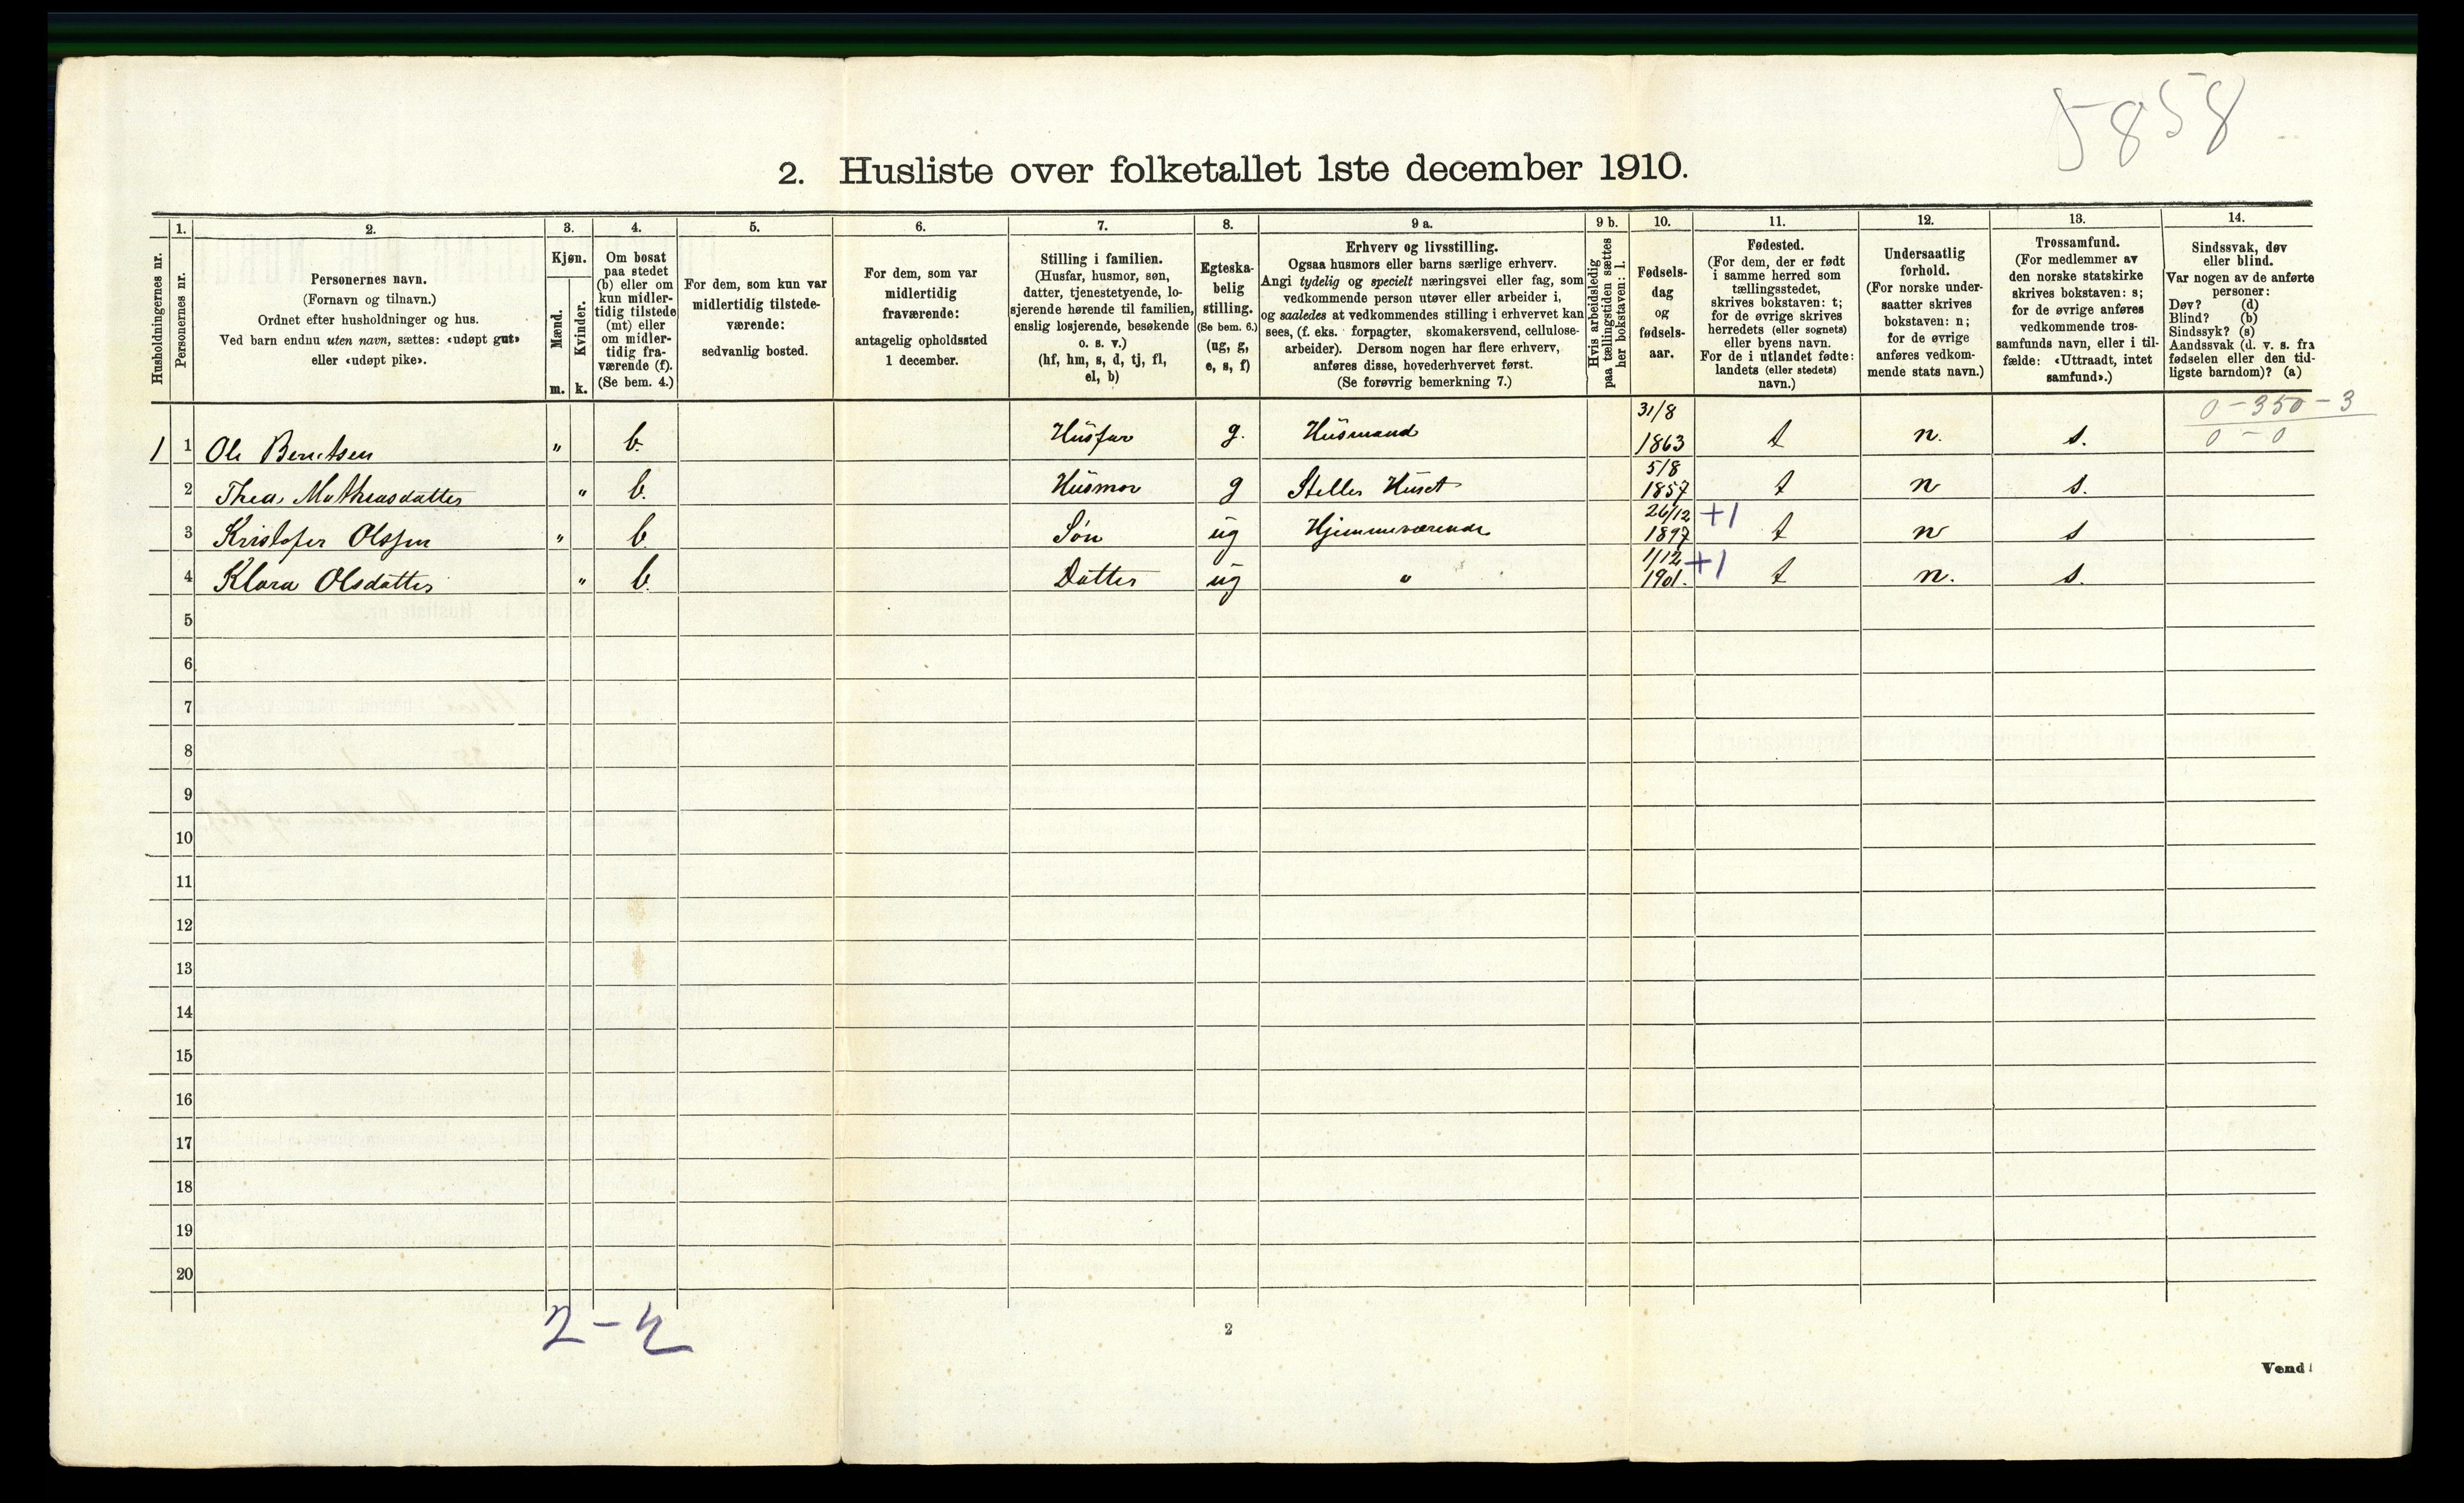 5858
2. Husliste over folketallet 1ste december 1910.
1. 2. 3. 4. 5. 6. 7. 8. 9 a. 9 b. 10. 11. 12. 13. 14.
Husholdningernes nr.
Personernes nr.
Personernes navn.
(Fornavn og tilnavn.)
Ordnet efter husholdninger og hus.
Ved barn endnu uten navn, sættes: «udøpt gut»
eller «udøpt pike».
Kjøn.
Mænd.
Kvinder.
m. k.
Om bosat
paa stedet
(b) eller om
kun midler-
tidig tilstede
(mt) eller
om midler-
tidig fra-
værende (f).
(Se bem. 4.)
For dem, som kun var
midlertidig tilstede-
værende:
sedvanlig bosted.
For dem, som var
midlertidig
fraværende:
antagelig opholdssted
1 december.
Stilling i familien.
(Husfar, husmor, søn,
datter, tjenestetyende, lo-
sjerende hørende til familien,
enslig losjerende, besøkende
o. s. v.)
(hf, hm, s, d, tj, fl,
el, b)
Egteska-
belig
stilling.
(Se bem. 6.)
(ug, g,
e, s, f)
Erhverv og livsstilling.
Ogsaa husmors eller barns særlige erhverv.
Angi tydelig og specielt næringsvei eller fag, som
vedkommende person utøver eller arbeider i,
og saaledes at vedkommendes stilling i erhvervet kan
sees, (f. eks. forpagter, skomakersvend, cellulose-
arbeider). Dersom nogen har flere erhverv,
anføres disse, hovederhvervet først.
(Se forøvrig bemerkning 7.)
Hvis arbeidsledig
paa tællingstiden sættes
her bokstaven: l.
Fødsels-
dag
og
fødsels-
aar.
Fødested.
(For dem, der er født
i samme herred som
tællingsstedet,
skrives bokstaven: t;
for de øvrige skrives
herredets (eller sognets)
eller byens navn.
For de i utlandet fødte:
landets (eller stedets)
navn.)
Undersaatlig
forhold.
(For norske under-
saatter skrives
bokstaven: n;
for de øvrige
anføres vedkom-
mende stats navn.)
Trossamfund.
(For medlemmer av
den norske statskirke
skrives bokstaven: s;
for de øvrige anføres
vedkommende tros-
samfunds navn, eller i til-
fælde: «Uttraadt, intet
samfund».)
Sindssvak, døv
eller blind.
Var nogen av de anførte
personer:
Døv? (d)
Blind? (b)
Sindssyk? (s)
Aandssvak (d. v. s. fra
fødselen eller den tid-
ligste barndom)? (a)
0 - 350 - 3
0 - 0
1 1 Ole Berntsen " b. Husfar g. Husmand 31/8 1863 t n. s.
2 Thea Mathiasdatter " b. Husmor g Steller Huset 5/8 1857 t n s.
3 Kristofer Olssen " b Søn ug Hjemmeværende 26/12 1897 +1 t n s
4 Klara Olsdatter " b. Datter ug " 1/12 1901. +1 t n. s.
5
6
7
8
9
10
11
12
13
14
15
16
17
18
19
20
2 - 2
2
Vend!